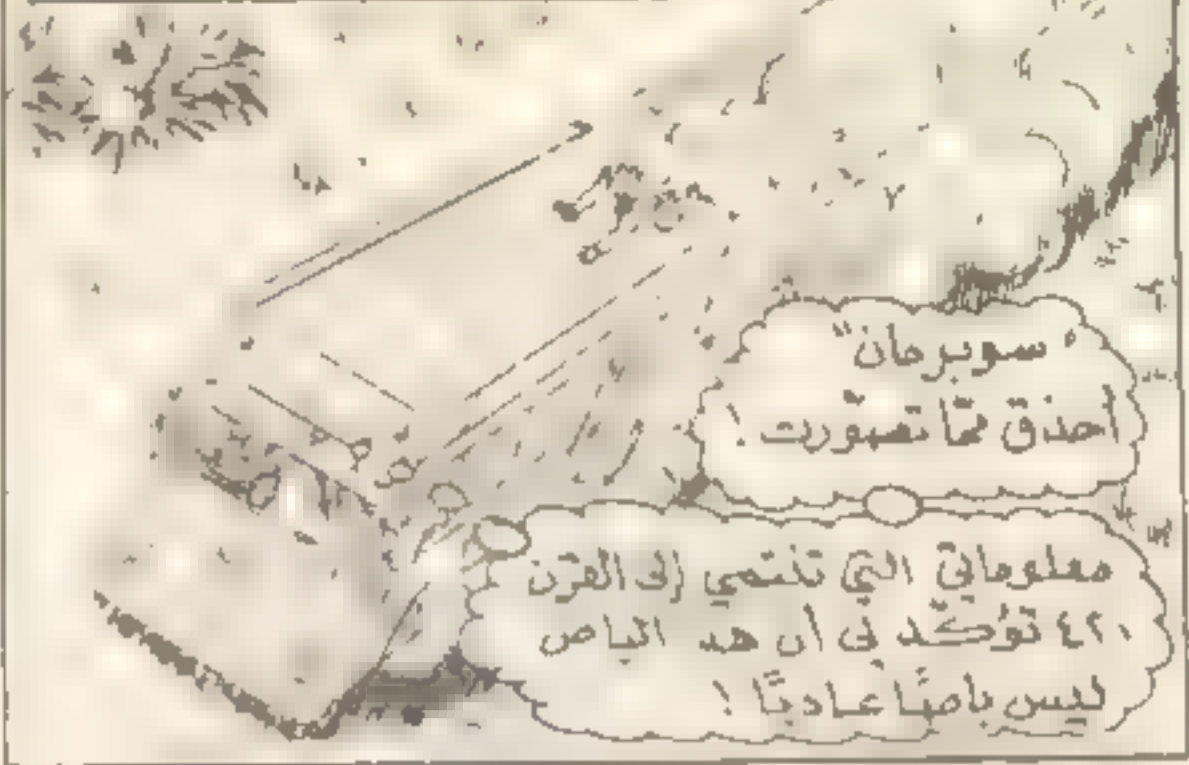 "سوبرمان"
أحذق ممّا تصوّرت !
معلوماتي التي تنتمي إلى القرن
٤٢٠ تؤكّد لي أن هد الباص
ليس باصًا عاديًا !